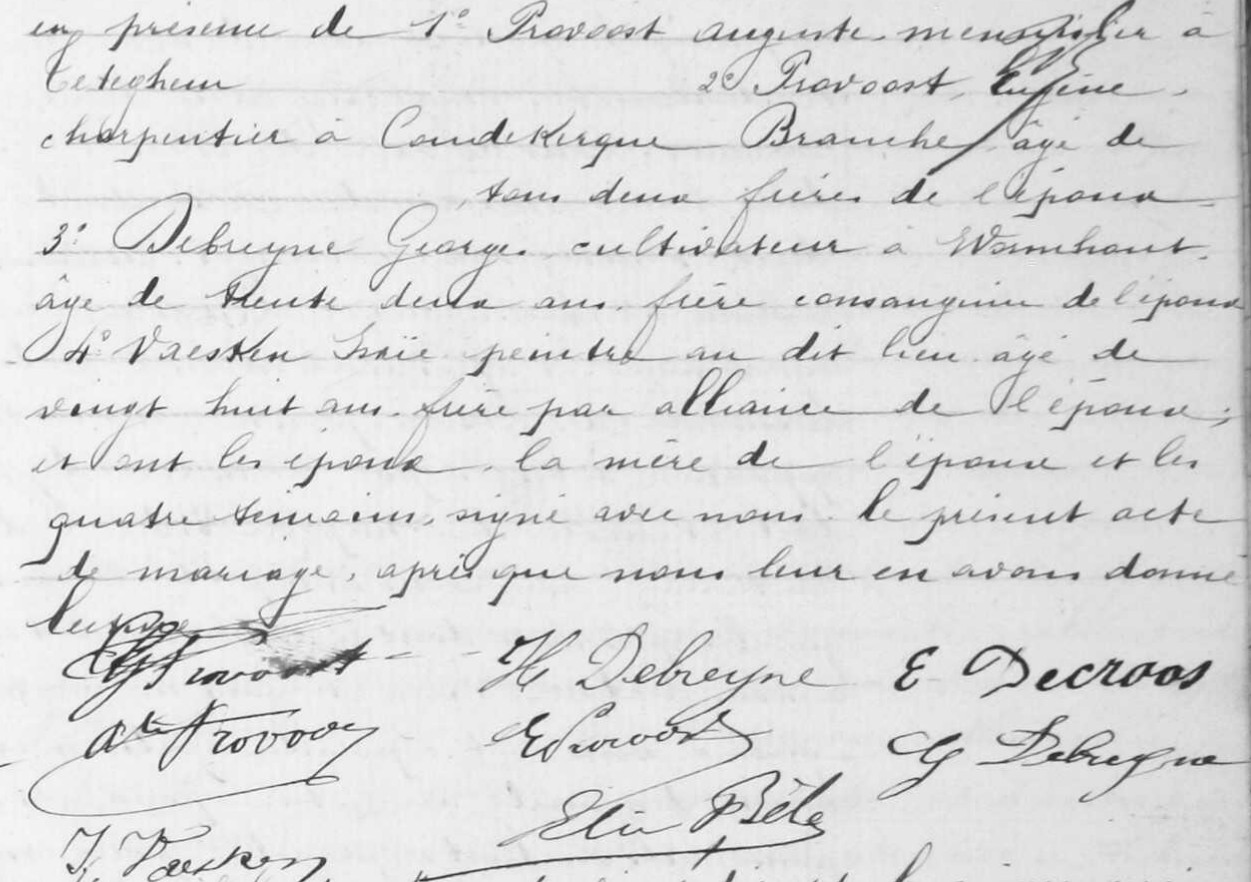 en présence de 1° Provoost Auguste menuisier à
Teteghem 2° Provoost Eugène,
charpentier à Coudekerque Branche âgé de
, tous deux frères de l'époux
3° Debreyne George cultivateur à Warmhout,
âgé de trente deux ans frère consanguin de l'épouse
4° Vaesken Isaïe peintre au dit lieu âgé de
vingt huit ans frère par alliance de l'épouse;
et ont les époux, la mère de l'époux et les
quatre témoins, signé avec nous le présent acte
de mariage, après que nous leur en avons donné
lecture
Provoost H Debreyne E Decroos
Ate Provoost E Provoost G Debreyne
J. Vaesken